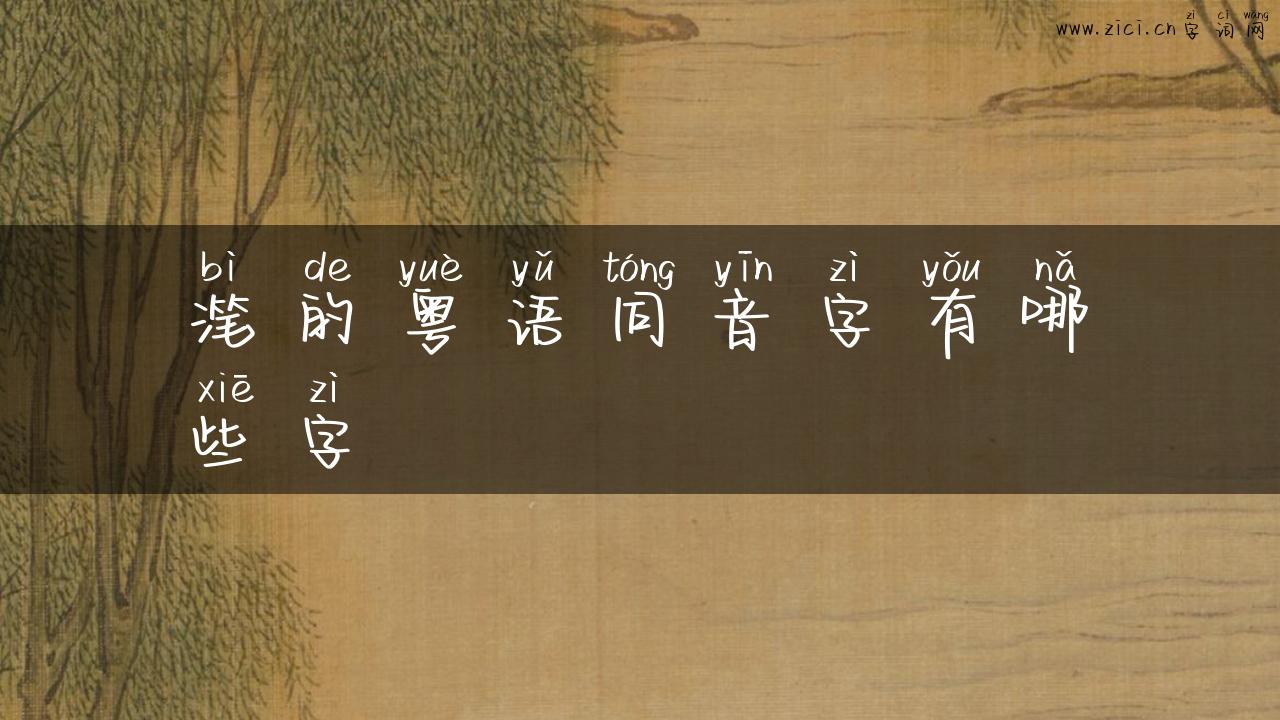 zì cí wǎng
www.zici.cn字词网
bì de yuè yǔ tóng yīn zì yǒu nǎ
滗的粤语同音字有哪
xiē zì
些字